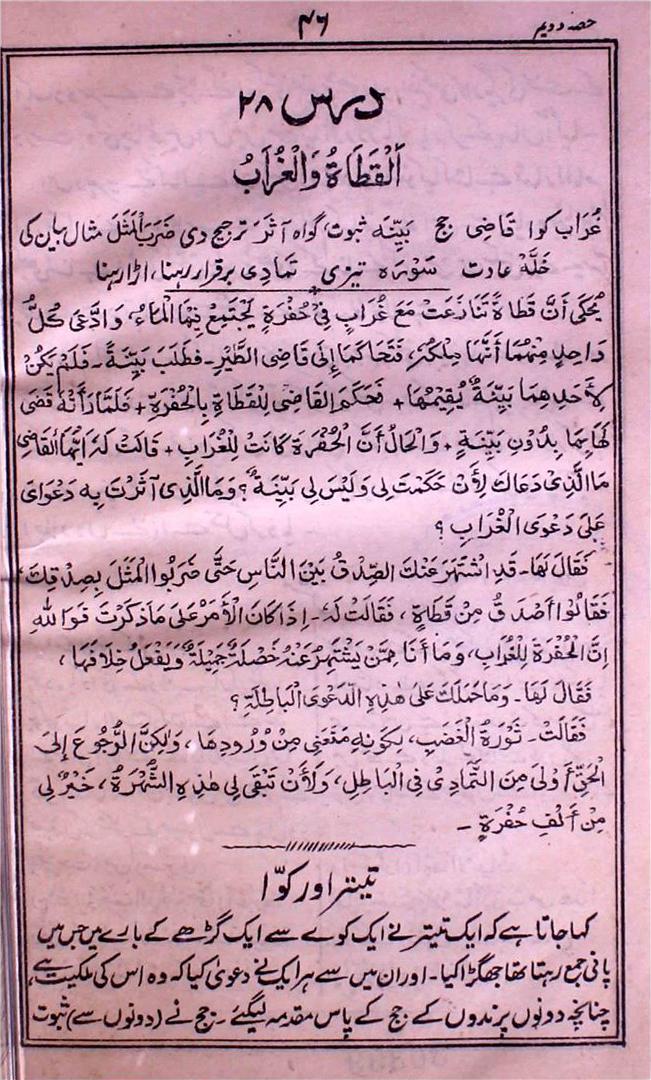 حصہ دویم
۴۶
درس ۲۸
اَلْقَطَاةُ وَالْغُرَابُ
غُرَاب کوا قَاضِی جج بَیِّنَه ثبوت گواہ آثَرَ ترجیح دی ضَرَبَ الْمَثَلَ مثال بیان کی
خَلَّه عادت سَوْرَه تیزی تَمَادِی برقرار رہنا، اڑا رہنا
يُحْكَى أَنَّ قَطَاةً تَنَازَعَتْ مَعَ غُرَابٍ فِيْ حُفْرَةٍ يَجْتَمِعُ فِيْهَا الْمَاءُ، وَادَّعَى كُلُّ
وَاحِدٍ مِنْهُمَا أَنَّهَا مِلْكُهُ، فَتَحَاكَمَا إِلَى قَاضِي الطَّيْرِ - فَطَلَبَ بَيِّنَةً - فَلَمْ يَكُنْ
لِأَحَدِهِمَا بَيِّنَةٌ يُقِيْمُهَا + فَحَكَمَ الْقَاضِيْ لِلْقَطَاةِ بِالْحُفْرَةِ + فَلَمَّا رَأَتْهُ قَضَى
لَهَا بِهَا بِدُوْنِ بَيِّنَةٍ + وَالْحَالُ أَنَّ الْحُفْرَةَ كَانَتْ لِلْغُرَابِ + قَالَتْ لَهُ أَيُّهَا الْقَاضِي
مَا الَّذِيْ دَعَاكَ لِأَنْ حَكَمْتَ لِيْ وَلَيْسَ لِيْ بَيِّنَةٌ؟ وَمَا الَّذِيْ آثَرْتَ بِهِ دَعْوَايَ
عَلَى دَعْوَى الْغُرَابِ؟
فَقَالَ لَهَا - قَدِ اشْتَهَرَ عَنْكَ الصِّدْقُ بَيْنَ النَّاسِ حَتَّى ضَرَبُوا الْمَثَلَ بِصِدْقِكَ،
فَقَالُوْا أَصْدَقُ مِنْ قَطَاةٍ، فَقَالَتْ لَهُ - إِذَا كَانَ الْأَمْرُ عَلَى مَا ذَكَرْتَ فَوَاللهِ
إِنَّ الْحُفْرَةَ لِلْغُرَابِ، وَمَا أَنَا مِمَّنْ يَشْتَهِرُ عَنْهُ خَصْلَةٌ جَمِيْلَةٌ وَيَفْعَلُ خِلَافَهَا،
فَقَالَ لَهَا - وَمَا حَمَلَكَ عَلَى هٰذِهِ الدَّعْوَى الْبَاطِلَةِ؟
فَقَالَتْ - ثَوْرَةُ الْغَضَبِ، لِكَوْنِهِ مَنَعَنِيْ مِنْ وُرُوْدِهَا، وَلٰكِنَّ الرُّجُوْعَ إِلَى
الْحَقِّ أَوْلَى مِنَ التَّمَادِيْ فِي الْبَاطِلِ، وَلَأَنْ تَبْقَى لِيْ هٰذِهِ الشُّهْرَةُ، خَيْرٌ لِيْ
مِنْ أَلْفِ حُفْرَةٍ -
تیتر اور کوّا
کہا جاتا ہے کہ ایک تیتر نے ایک کوے سے ایک گڑھے کے بارے میں جس میں
پانی جمع رہتا تھا جھگڑا کیا۔ اور ان میں سے ہر ایک نے دعویٰ کیا کہ وہ اس کی ملکیت ہے،
چنانچہ دونوں پرندوں کے جج کے پاس مقدمہ لیگئے۔ جج نے (دونوں سے) ثبوت